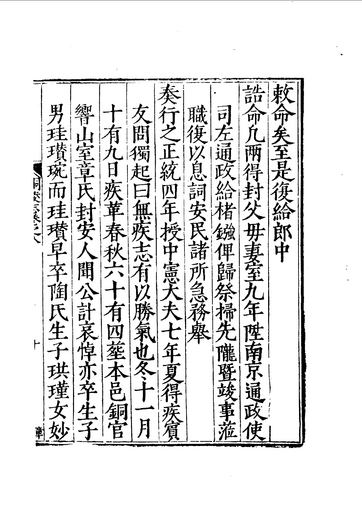 敕命矣至是復給郎中
誥命凡兩得封父母妻室九年陞南京通政使
司左通政給楮鏹俾歸祭掃先隴暨竣事蒞
職復以息詞安民諸所急務舉
奏行之正統四年授中憲大夫七年夏得疾賓
友問獨起曰無疾志有以勝氣也冬十一月
十有九日疾革春秋六十有四塟本邑銅官
響山室章氏封安人聞公訃哀悼亦卒生子
男珪瓚琬而珪瓚早卒陶氏生子珙瑾女妙